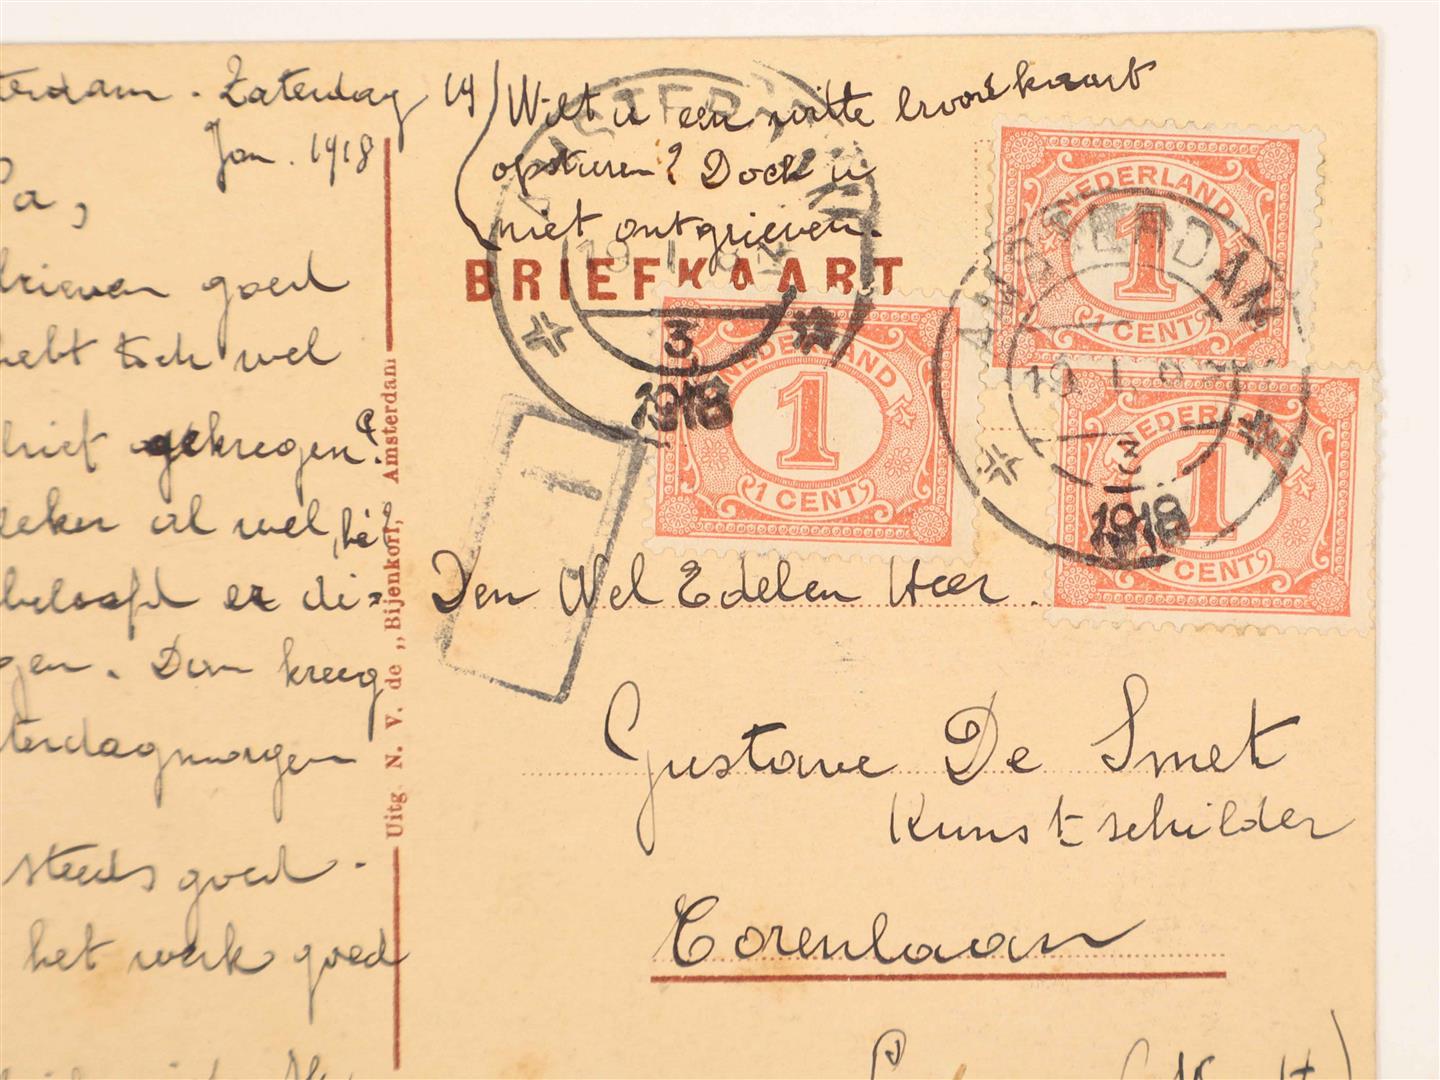 terdam. Zaterdag 19/
Jan. 1918
Pa,
brieven goed
hebt toch wel
gekregen?
zeker al wel, hè
beloofd er di-
gen. Dan kreeg
terdagmorgen
steeds goed.
het werk goed
Uitg. N. V. de „Bijenkorf," Amsterdam
Wilt u een witte broodkaart
opsturen? Doch u
niet ontgrieven.
BRIEFKAART
AMSTERDAM
19. 1. 18
3
1918
NEDERLAND
1
1 CENT
NEDERLAND
1
1 CENT
AMSTERDAM
19. 1.
3
1918
NEDERLAND
1
CENT
1
Den Wel Edelen Heer
Gustave De Smet
Kunstschilder
Torenlaan